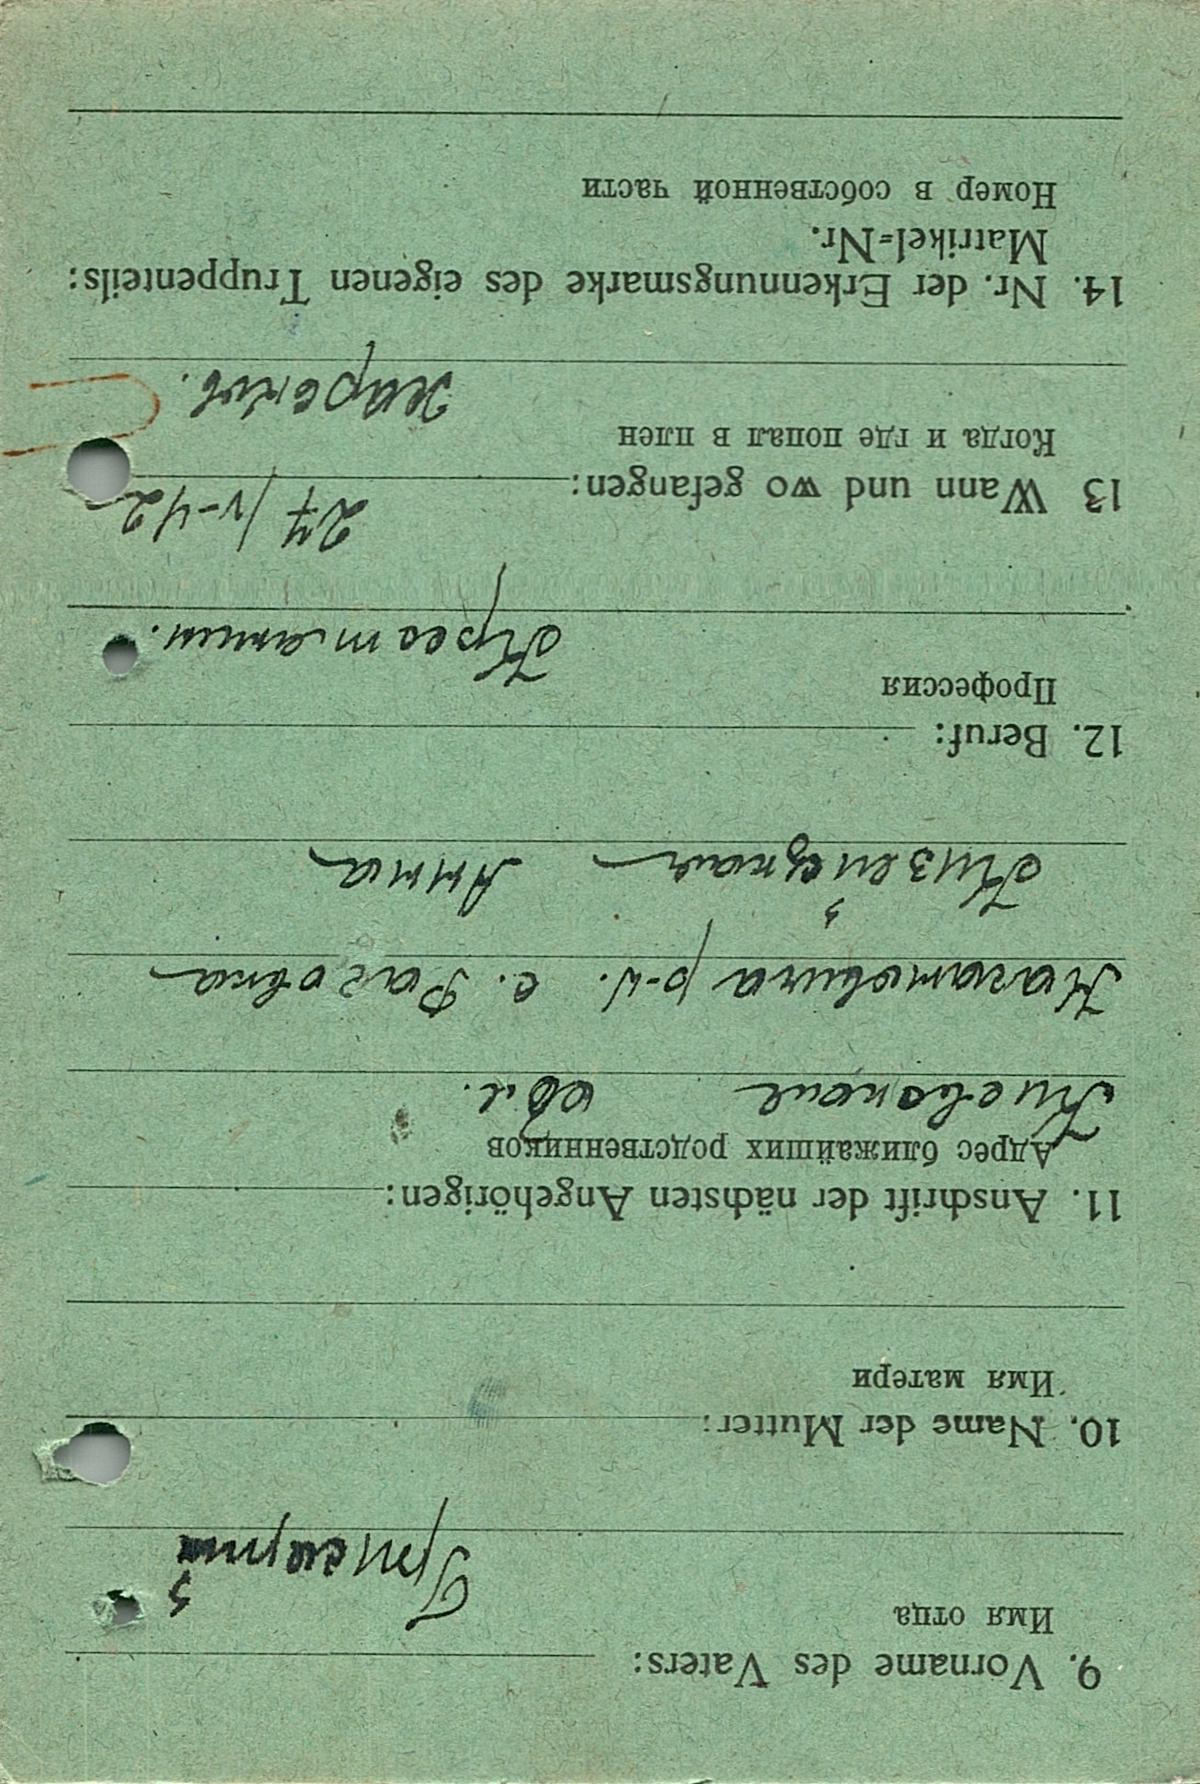 9. Vorname des Vaters:
Имя отца
Григорий
10. Name der Mutter:
Имя матери
11. Anschrift der nächsten Angehörigen:
Адрес ближайших родственников
Киевская обл.
р-н. с.
Анна
12. Beruf:
Профессия
Крестьянин.
13 Wann und wo gefangen:
27/V-42
Когда и где попал в плен
Харьков.
14. Nr. der Erkennungsmarke des eigenen Truppenteils:
Matrikel=Nr.
Номер в собственной части